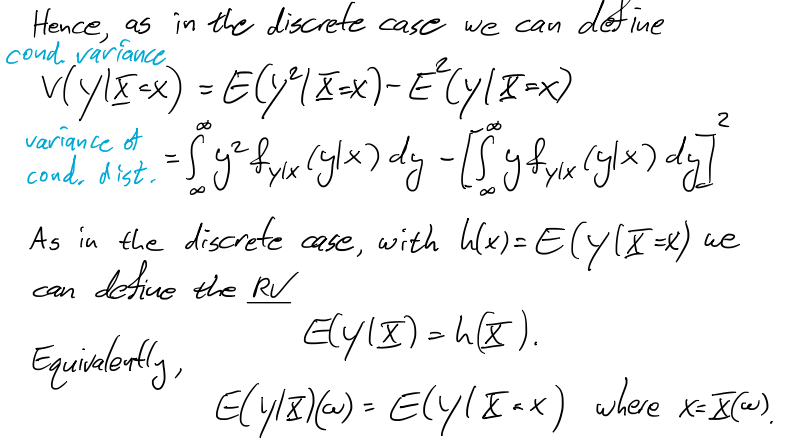 Hence, as in the discrete case we can define
cond. variance
V(Y|X=x) = E(Y²|X=x) - E²(Y|X=x)
variance of
cond. dist. = ∫_∞^∞ y² f_{Y|X}(y|x) dy - [∫_∞^∞ y f_{Y|X}(y|x) dy]²
As in the discrete case, with h(x) = E(Y|X=x) we
can define the RV
E(Y|X) = h(X).
Equivalently,
E(Y|X)(ω) = E(Y|X=x) where x=X(ω).